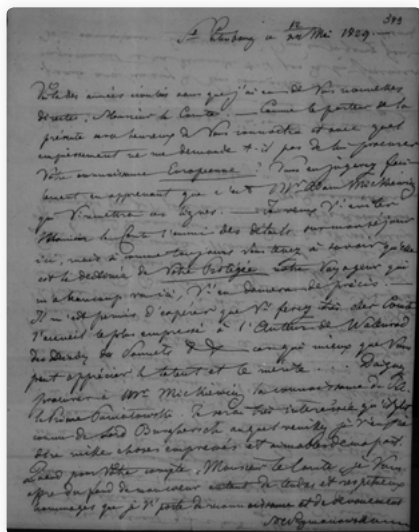 St Petersbourg ce 12/24 Mai 1829.
593
Voilà des années écoulées sans que j'ai eu de Vos nouvelles
directes, Monsieur le Comte, — Comme le porteur de la
présente sera heureux de Vous connoître et avec quel
empressement ne me demande-t-il pas de lui procurer
Votre connaissance Européenne! Vous en jugerez faci-
lement en apprenant que c'est Mr Adam Mickiewicz
qui Vs remettra ces lignes. — Je veux Vs éviter
Monsieur le Comte l'ennui des détails sur mon séjour
ici, mais si comme toujours Vous tenez à savoir quelle
est la destinée de Votre Protégée notre Voyageur qui
m'a beaucoup vu ici, Vs en donnera de précis. —
Il m'est permis d'espérer que Vs ferez très cher Comte
l'accueil le plus empressé à l'Auteur de Wallenrod
des Dziady des Sonnets & & — car qui mieux que Vous
peut apprécier le talent et le mérite ... Daignez
procurer à Mr Mickiewicz la connaissance de
le Prince Poniatowski Il sera très intéressé
connu de Lord Burghersh auquel veuillez je Vs en prie
dire mille choses empressées et aimables de ma part.
Quand pour Votre compte, Monsieur le Comte, je Vous
offre du fond de mon coeur autant de tendres et respectueux
hommages que je Vs porte de reconnaissance et de dévouement